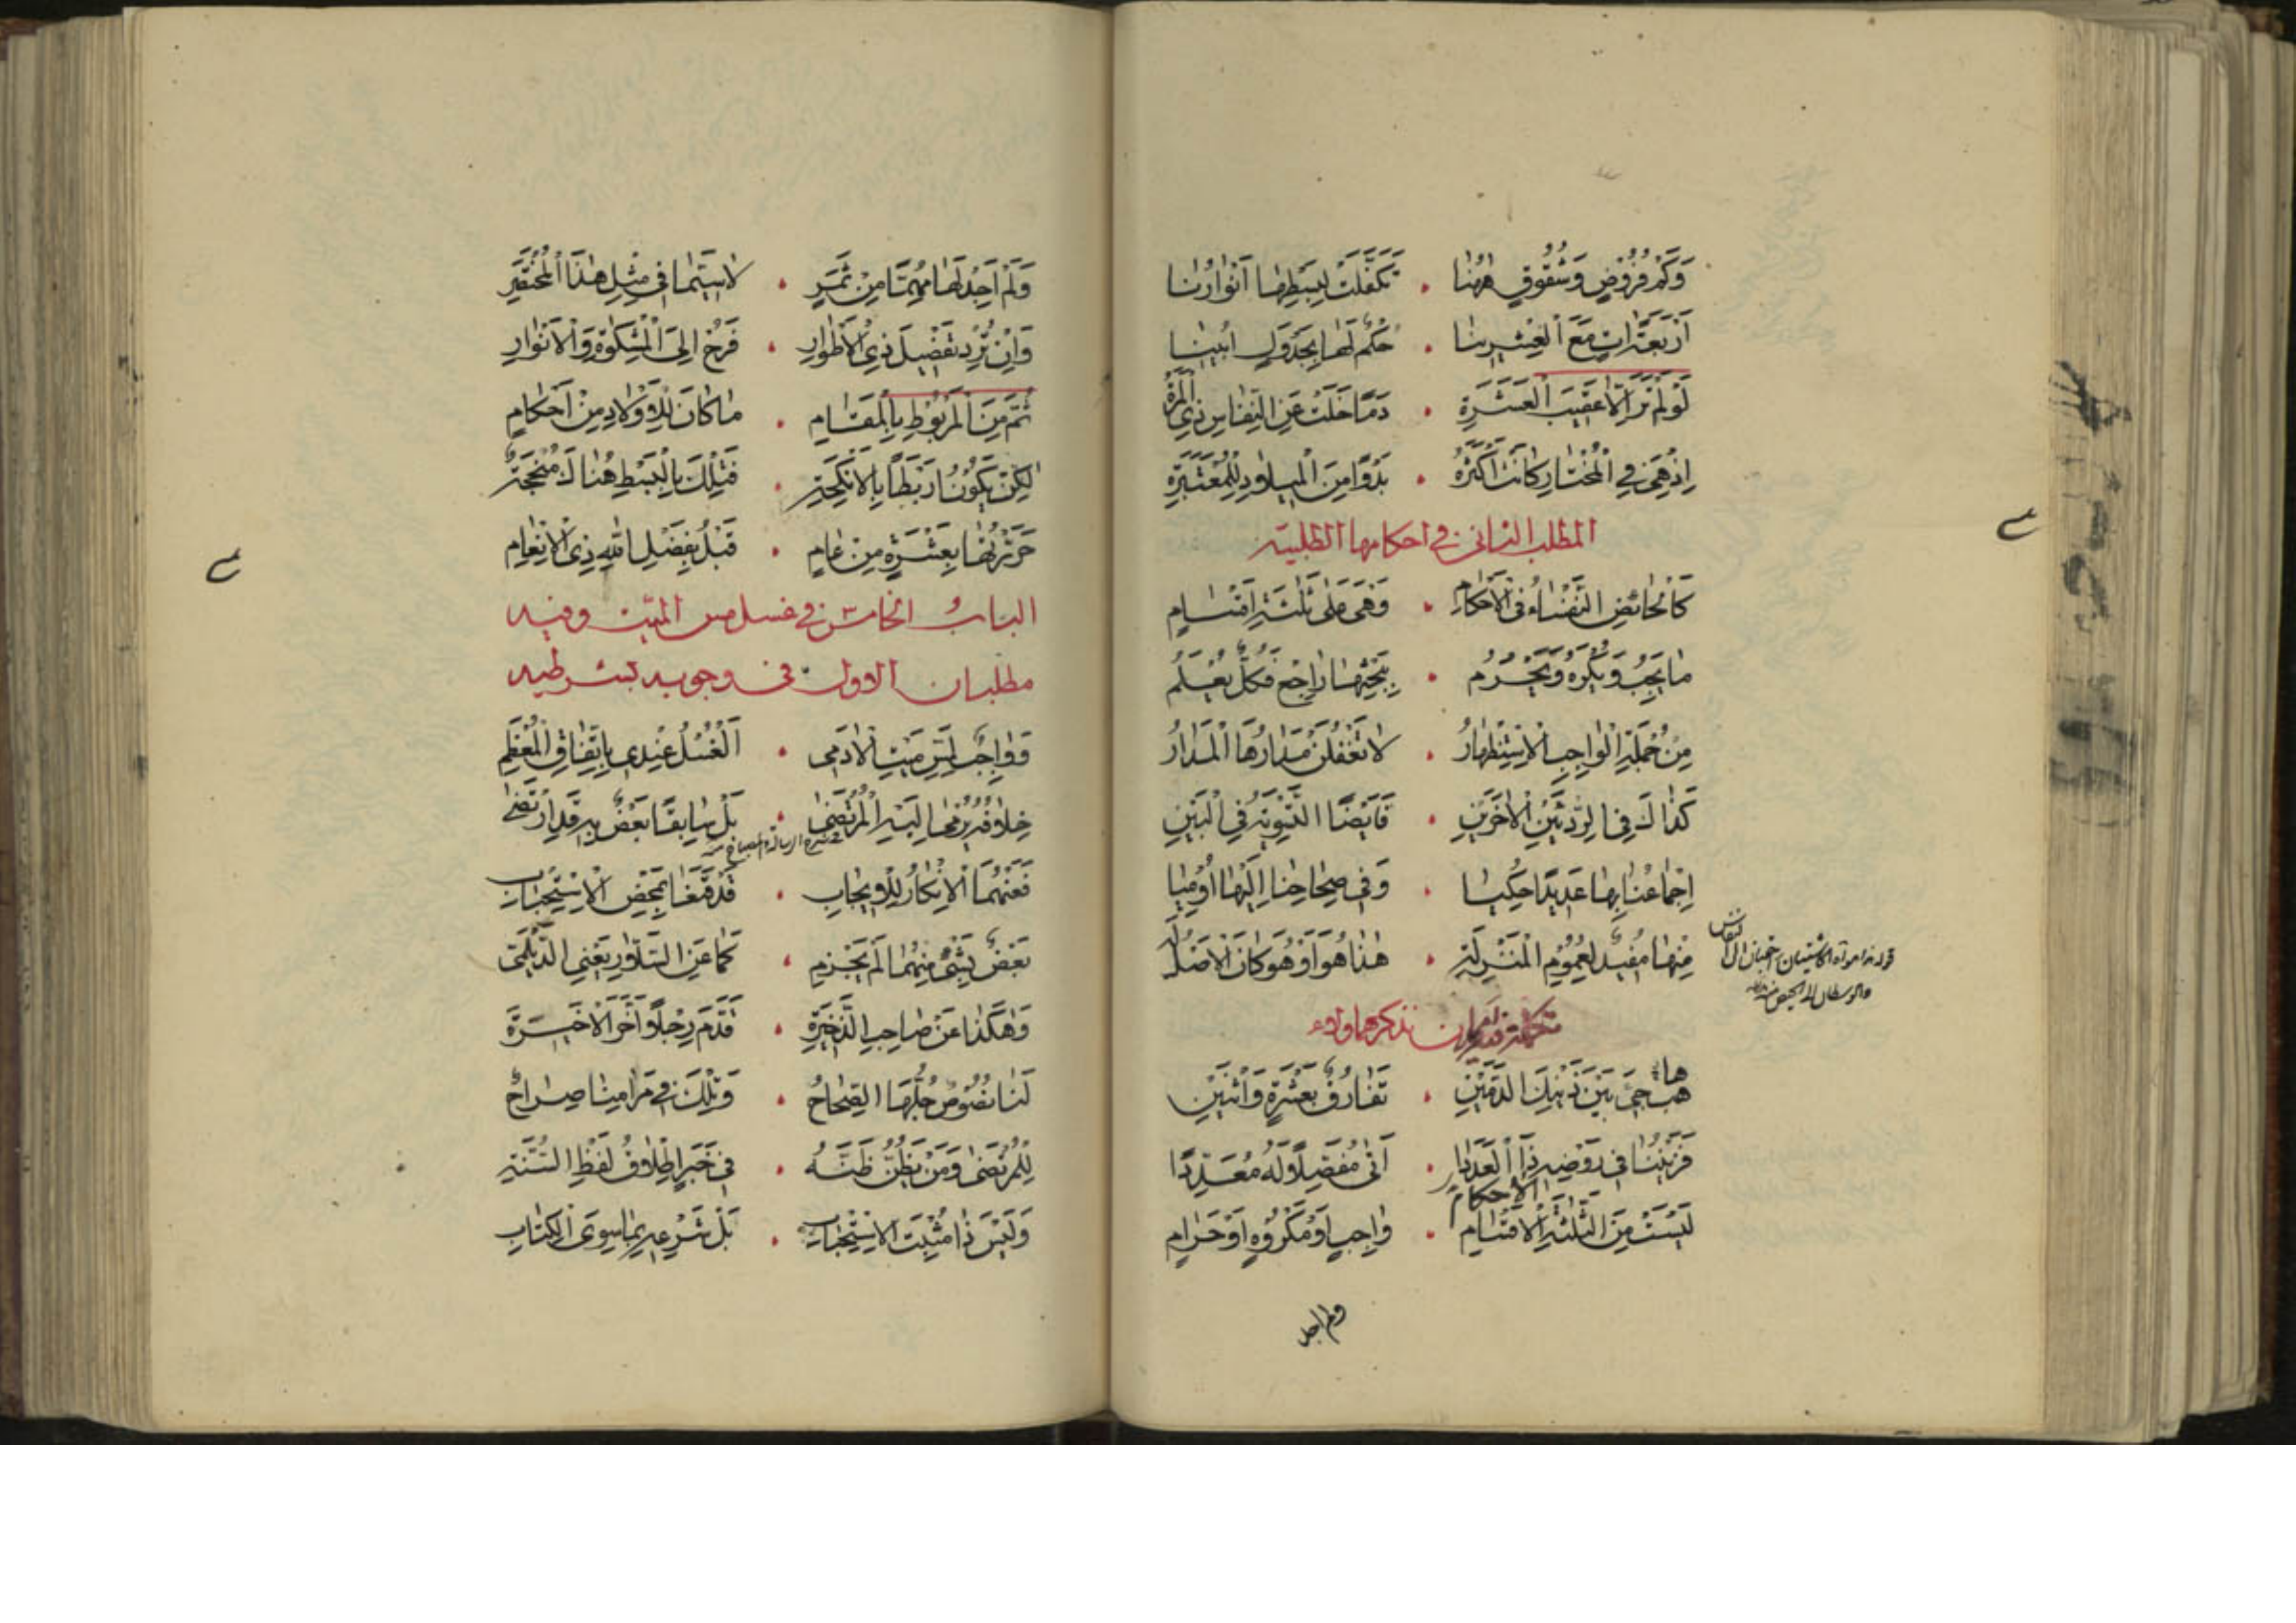 وَكَمْ فُرُوْضٍ وَشُقُوْقٍ هٰهُنٰا • تَكَفَّلَتْ لِبَسْطِهٰا اَنْوٰارُنٰا
اَرْبَعَةٌ اٰتٍ مَعَ الْعِشْرِينٰا • حُكْمٌ لَهٰا بِجَدْوَلٍ اُبِينٰا
لَوْ لَمْ تَرَ اِلّٰا عَقِيبَ الْعَشَرَةِ • دَمًا خَلَتْ عَنِ النِّفٰاسِ ذِي الْمَرْأَةُ
اِذْ هِيَ فِي الْمُخْتٰارِ كٰانَتْ اَكْثَرُهُ • بَدْوًا مِنَ الْمِيلٰادِ لِلْمُعْتَبَرَةِ
المطلب الثانى فى احكامها الطلبية
كَالْحٰائِضِ النُّفَسٰاءُ فِي الْاَحْكٰامِ • وَهْيَ عَلٰى ثَلٰثَةِ اَقْسٰامٍ
مٰا يَجِبُ وَيُكْرَهُ وَيَحْرُمُ • بِبَحْثِهٰا رٰاجِعْ فَكُلٌّ يُعْلَمُ
مِنْ جُمْلَةِ الْوٰاجِبِ الْاِسْتِظْهٰارُ • لٰا تَغْفُلَنْ مَدٰارُهَا الْمَدٰارُ
كَذٰاكَ فِي الرَّدَّيْنِ الْاٰخَرَيْنِ • فَاَيْضًا التَّسْوِيَةُ فِي الْبَيْنِ
اِجْمٰاعُنٰا بِهٰا عَدِيدًا حُكِيٰا • وَفِي صِحٰاحِنٰا اِلَيْهٰا اُوْمِيٰا
مِنْهٰا مُفِيدٌ لِعُمُوْمِ الْمَنْزِلَةِ • هٰذٰا هُوَ اَوْ هُوَ كٰانَ الْاَصْلُ لَهُ
تكملة فيها امران نذكرهما ولاء
هٰا هَبْ جِيْءَ بَيْنَ ذَيْنِكَ الدَّمَيْنِ • تَفٰارُقٌ بِعَشْرَةٍ وَاثْنَيْنِ
فَزَيْنُنٰا فِي رَوْضِهِ ذَا الْعَدَدٰا • اَتٰى مُفَصِّلًا وَلَهُ مُعَدِّدًا
لَيْسَتْ مِنَ الثَّلٰثَةِ الْاَقْسٰامِ الاحكام • وٰاجِبٍ اَوْ مَكْرُوْهٍ اَوْ حَرٰامٍ
ولم اجد
وَلَمْ اَجِدْ لَهٰا مُهِمًّا مِنْ ثَمَرٍ • لٰا سِيَّمٰا فِي مِثْلِ هٰذَا الْمُخْتَصَرِ
وَاِنْ تُرِدْ تَفْضِيلَ ذِي الْاَطْوٰارِ • فَرُحْ اِلَى الْمِشْكٰوةِ وَالْاَنْوٰارِ
ثُمَّ مِنَ الْمَرْبُوْطِ بِالْمَقٰامِ • مٰا كٰانَ لِلْاَوْلٰادِ مِنْ اَحْكٰامٍ
لٰكِنْ بِكَوْنِهٰا رَبْطًا بِالْاَنْكِحَةِ • فَتِلْكَ بِالْبَسْطِ هُنٰاكَ مُنْجَحَةٌ
حَرَّرْتُهٰا بِعَشْرَةٍ مِنْ عٰامٍ • قَبْلُ بِفَضْلِ اللهِ ذِي الْاِنْعٰامِ
الباب الخامس فى غسل مس الميت وفيه
مطلبان الاول فى وجوبه بشرطيه
وَوٰاجِبٌ لِمَسِّ مَيْتِ الْاٰدَمِي • اَلْغُسْلُ عِنْدِي بِاتِّفٰاقِ الْمُعْظَمِ
خِلٰافُهُ يُرْمٰى اِلَيْهِ الْمُرْتَضٰى • بَلْ سٰابِقًا بَعْضٌ بِهِ قَدِ ارْتَضٰى
فَعَنْهُمَا الْاِنْكٰارُ لِلْاِيجٰابِ • قَدْ قَنَعٰا بِمَحْضِ الْاِسْتِحْبٰابِ
بَعْضٌ بِشَيْءٍ مِنْهُمٰا لَمْ يَجْزِمِ • كَمٰا عَنِ السَّلّٰارِ يَعْنِي الدَّيْلَمِيّ
وَهٰكَذٰا عَنْ صٰاحِبِ الذَّخِيرَةِ • قَدَّمَ رِجْلًا وَاَخَّرَ الْاَخِيرَةَ
لَنٰا نُصُوْصٌ جُلُّهَا الصِّحٰاحُ • وَتِلْكَ فِي مَرٰامِنٰا صِرٰاحٌ
لِلْمُرْتَضٰى وَمَنْ يَظُنُّ ظَنَّهُ • فِي خَبَرٍ اِطْلٰاقُ لَفْظِ السُّنَّةِ
وَلَيْسَ ذٰا مُثْبِتَ الْاِسْتِحْبٰابِ • بَلْ شَرْعِهِ بِمٰا سِوَى الْكِتٰابِ